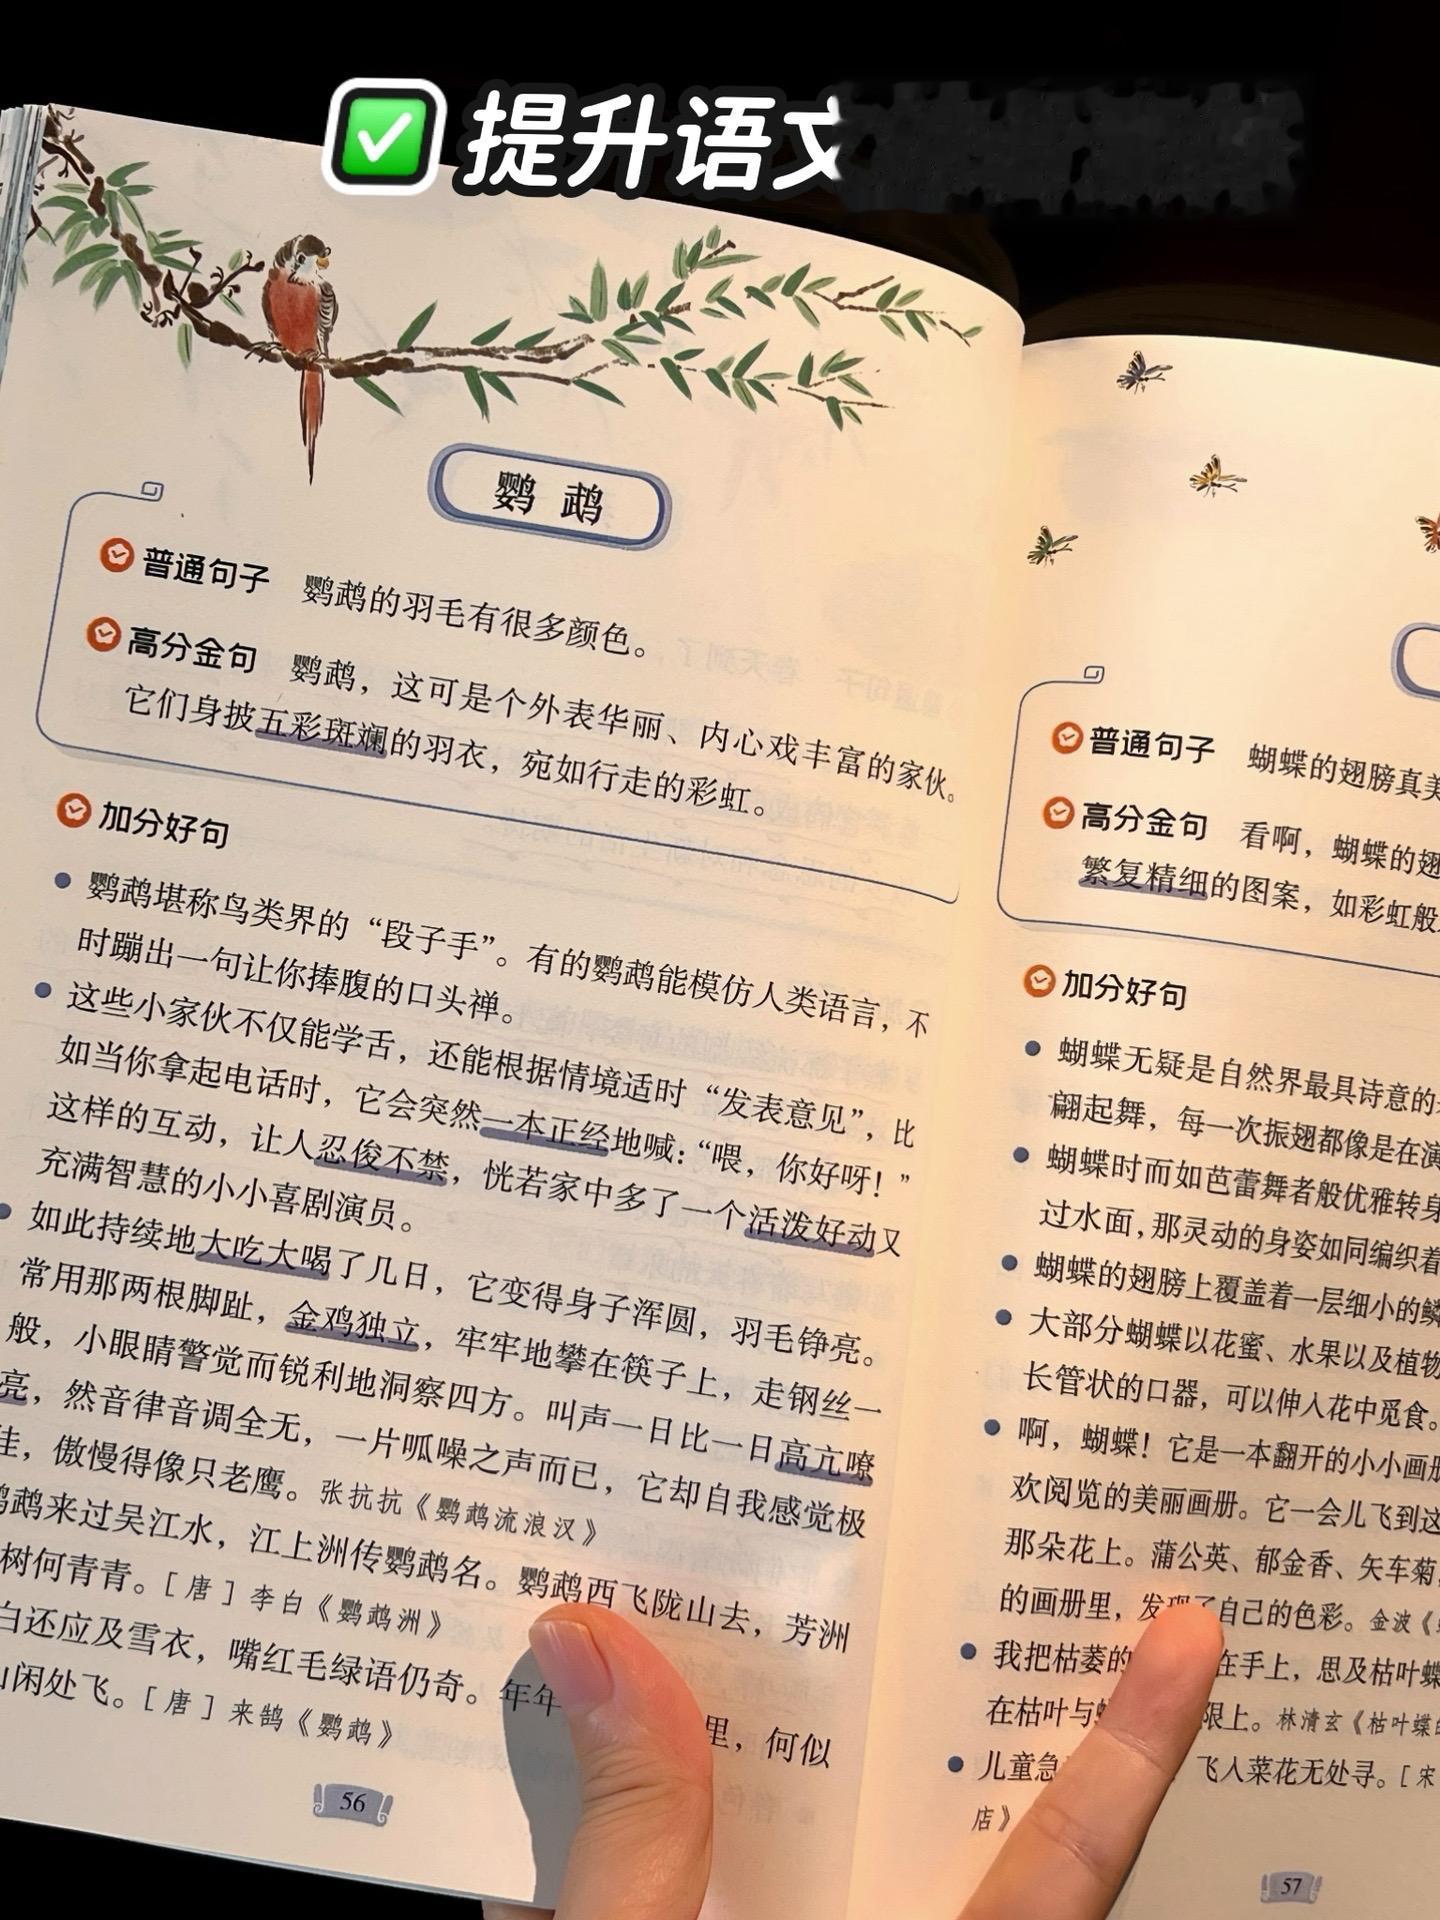 提升语文
鹦鹉
普通句子 鹦鹉的羽毛有很多颜色。
高分金句 鹦鹉，这可是个外表华丽、内心戏丰富的家伙。
它们身披五彩斑斓的羽衣，宛如行走的彩虹。
加分好句
鹦鹉堪称鸟类界的“段子手”。有的鹦鹉能模仿人类语言，不
时蹦出一句让你捧腹的口头禅。
这些小家伙不仅能学舌，还能根据情境适时“发表意见”，比
如当你拿起电话时，它会突然一本正经地喊：“喂，你好呀！”
这样的互动，让人忍俊不禁，恍若家中多了一个活泼好动又
充满智慧的小小喜剧演员。
如此持续地大吃大喝了几日，它变得身子浑圆，羽毛铮亮。
常用那两根脚趾，金鸡独立，牢牢地攀在筷子上，走钢丝一
般，小眼睛警觉而锐利地洞察四方。叫声一日比一日高亢嘹
亮，然音律音调全无，一片呱噪之声而已，它却自我感觉极
佳，傲慢得像只老鹰。张抗抗《鹦鹉流浪汉》
鹉来过吴江水，江上洲传鹦鹉名。鹦鹉西飞陇山去，芳洲
树何青青。［唐］李白《鹦鹉洲》
白还应及雪衣，嘴红毛绿语仍奇。年年
里，何似
山闲处飞。［唐］来鹄《鹦鹉》
56
普通句子 蝴蝶的翅膀真美
高分金句 看啊，蝴蝶的翅
繁复精细的图案，如彩虹般
加分好句
蝴蝶无疑是自然界最具诗意的
翩起舞，每一次振翅都像是在演
蝴蝶时而如芭蕾舞者般优雅转身
过水面，那灵动的身姿如同编织着
蝴蝶的翅膀上覆盖着一层细小的鳞
大部分蝴蝶以花蜜、水果以及植物
长管状的口器，可以伸入花中觅食。
啊，蝴蝶！它是一本翻开的小小画册
欢阅览的美丽画册。它一会儿飞到这
那朵花上。蒲公英、郁金香、矢车菊，
的画册里，发现了自己的色彩。金波《
我把枯萎的 在手上，思及枯叶蝶
在枯叶与 限上。林清玄《枯叶蝶的
儿童急 飞入菜花无处寻。［宋
店》
57